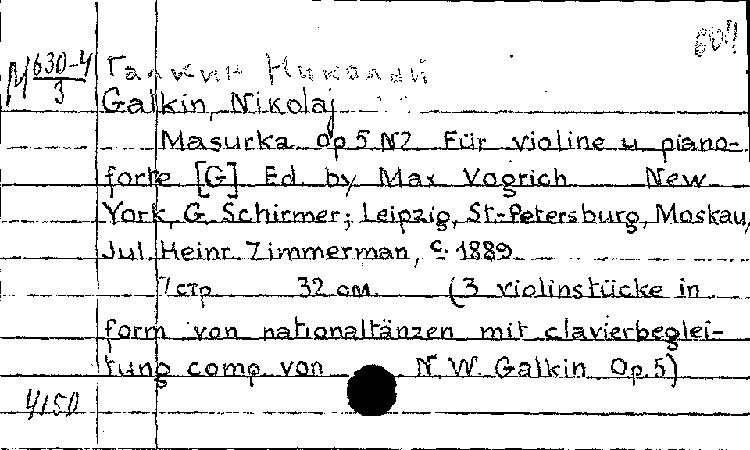 604
M 630-4
3
Галкин Николай
Galkin, Nikolaj
Masurka Op 5 N2 Für violine u piano-
forte [G] Ed. by Max Vogrich New-
York, G. Schirmer; Leipzig, St.-Petersburg, Moskau,
Jul. Heinr. Zimmerman, c. 1889
7 стр 32 см. (3 violinstücke in
form von nationaltänzen mit clavierbeglei-
tung comp. von N. W. Galkin Op. 5)
4150